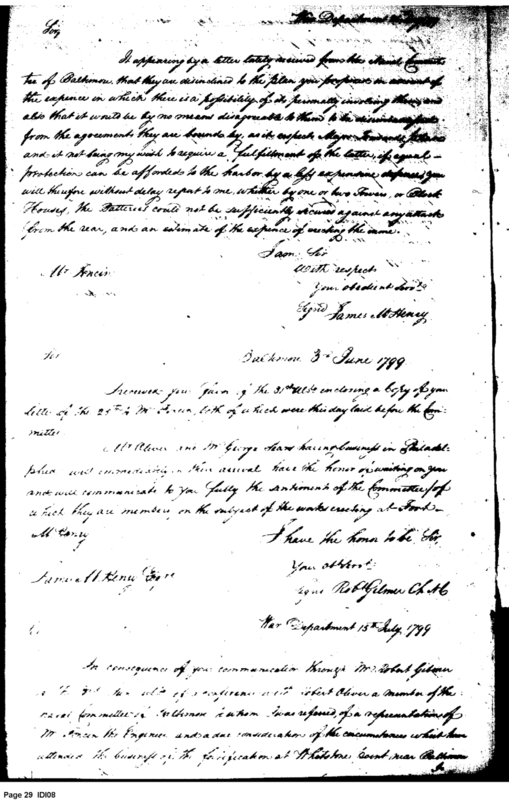 War Department
Sir,
It appearing by a letter lately received from the Naval Committee
tee of Baltimore, that they are disinclined to the plan you proposed on account of
the expence in which there is a possibility of its personally involving them, and
also that it would be by no means disagreeable to them to be
from the agreements they are bound by, as it respects Major
and it not being my wish to require a fulfillment of the latter, if equal
protection can be afforded to the harbor by a less expensive defence, you
will therefore without delay report to me, whether by one or two Towers, or Block
Houses, the Batteries could not be sufficiently secured against any attack
from the rear, and an estimate of the expence of erecting the same.
I am Sir
With respect
Mr. Foncin
Your obedient Servt.
Signd James McHenry
Baltimore 3d June 1799
Sir
I received your favor of the 31st Ulto. enclosing a Copy of your
letter of the 25th to Mr. Foncin, both of which were this day laid before the Com-
mittee
Mr. Oliver and Mr. George Sears having business in Philadel-
phia will immediately on their arrival have the honor of waiting on you
and will communicate to you fully the sentiments of the Committee (of
which they are members) on the subject of the works erecting at Fort
McHenry
I have the honor to be Sir,
Your Obt. Servt.
James McHenry Esqre
Signd Robt. Gilmor Ch. N C
War Department 15th July, 1799
In consequence of your communication through Mr. Robert Gilmor
of a conference with Robert Oliver a member of the
naval Committee of Baltimore to whom I was referred, of a representation of
Mr. Foncin the Engineer and a due consideration of the circumstances which have
attended the business of the fortification at Whetstone Point near Baltimore
Page 29 IDI08